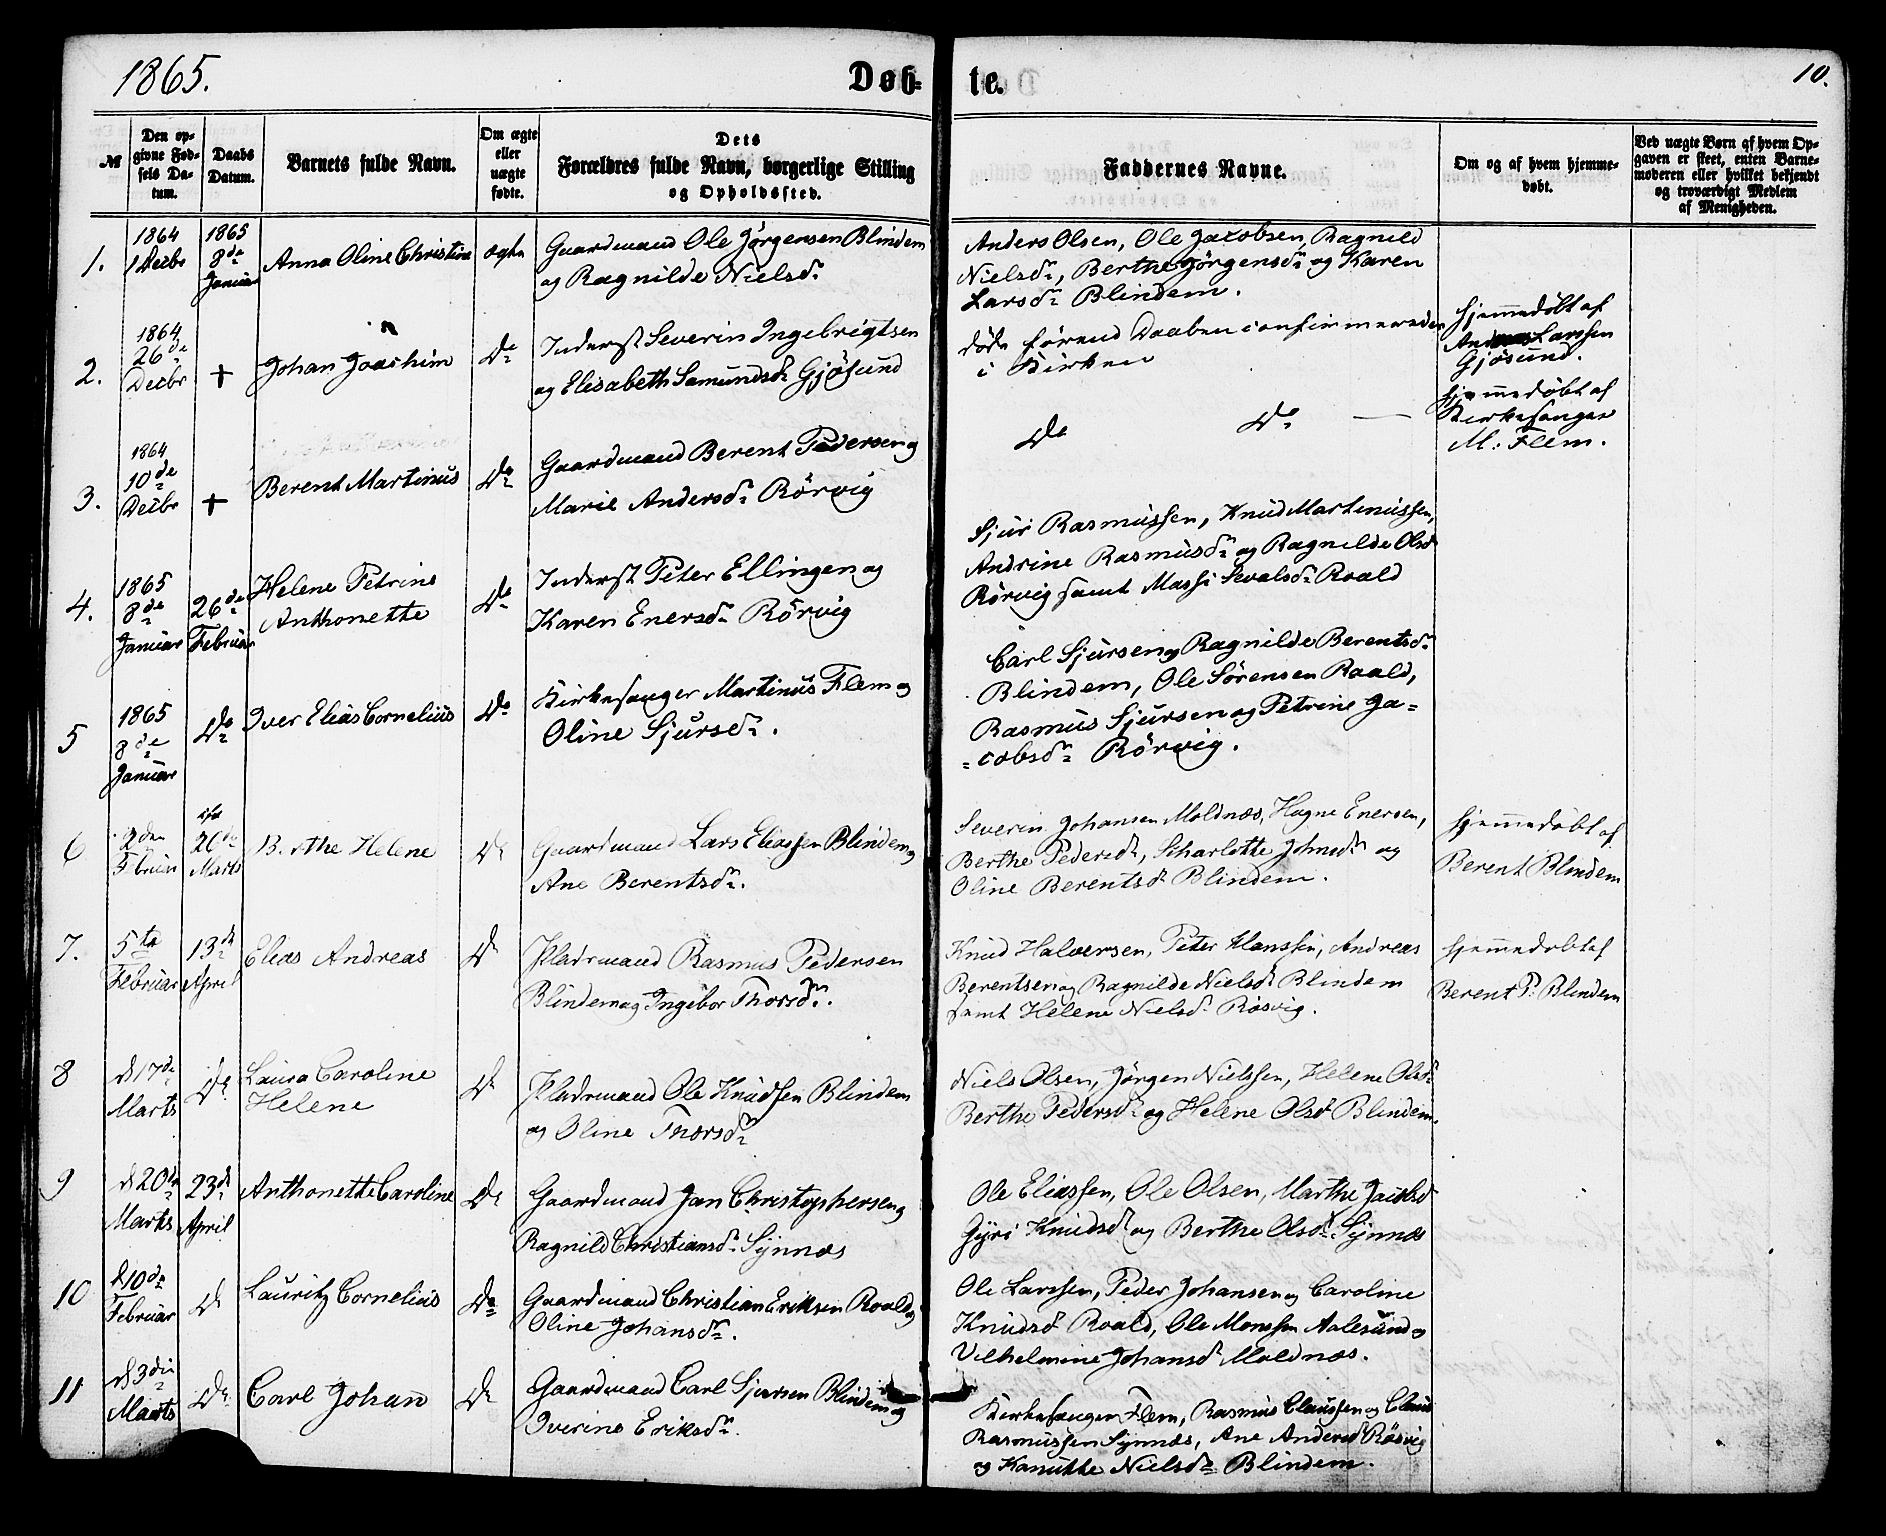 1865.
Døb-
te.
10.
№
Den op-
givne Fød-
sels Da-
tum.
Daabs
Datum.
Barnets fulde Navn.
Om ægte
eller
uægte
fødte.
Dets
Forældres fulde Navn, borgerlige Stilling
og Opholdssted.
Faddernes Navne.
Om og af hvem hjemme-
døbt.
Ved uægte Børn af hvem Op-
gaven er skeet, enten Barne-
moderen eller hvilket bekjendt
og troværdigt Medlem
af Menigheden.
1.
1864
1 Decbr
1865
8de
Januar
Anna Oline Christine
ægte
Gaardmand Ole Jørgensen Blindem
og Ragnilde Nielsdr
Anders Olsen, Ole Jacobsen, Ragnild
Nielsdr, Berthe Jørgensdr og Karen
Larsdr Blindem.
2.
1864
26de
Decbr
+
Johan Joachim
Do
Inderst Severin Ingebrigtsen
og Elisabeth Samundsdr Gjøsund
døde førend Daaben confirmeredes
i Kirken
Hjemmedøbt af
Andreas Larssen
Gjøsund.
3.
1864
10de
Decbr
+
Berent Martinus
Do
Gaardmand Berent Pedersen og
Marie Andersdr Rörvig
Do Do —
Hjemmedøbt af
Kirkesanger
M: Flem.
4.
1865
8de
Januar
26de
Februar
Helene Petrine
Anthonette
Do
Inderst Peter Ellingen og
Karen Enersdr Rörvig
Sjur Rasmussen, Knud Martinussen,
Andrine Rasmusdr og Ragnilde Olsdr
Rørvig samt Massi Sevalsdr Roald
5
1865
8de
Januar
Do
Iver Elias Cornelius
Do
Kirkesanger Martinus Flem og
Oline Sjursdr.
Carl Sjursen og Ragnilde Berentsdr
Blindem, Ole Sörensen Roald,
Rasmus Sjursen og Petrine Ja=
=cobsdr Rörvig.
6
2den
Februar
26de
Marts
Berthe Helene
Do
Gaardmand Lars Eliassen Blindem og
Ane Berentsdr.
Severin Johansen Moldnæs, Hagne Enersen,
Berthe Pedersdr, Scharlotte Johnsdr og
Oline Berentsdr Blindem.
Hjemmedøbt af
Berent Blindem
7.
5te
Februar
13de
April
Elias Andreas
Do
Pladsmand Rasmus Pedersen
Blindem og Ingebor Thorsdr.
Knud Halversen, Peter Hanssen, Andreas
Berentsen og Ragnilde Nielsdr Blindem
samt Helene Nielsdr Røsvig.
Hjemmedøbt af
Berent P: Blindem
8
d 17de
Marts
Do
Laura Caroline
Helene
Do
Pladsmand Ole Knudsen Blindem
og Oline Thorsdr
Niels Olsen, Jørgen Nielssen, Helene Olsdr
Berthe Pedersdr og Helene Olsdr Blindem.
9
d 20de
Marts
23de
April
Anthonette Caroline
Do
Gaardmand Jan Christophersen og
Ragnild Christiansdr Synnæs
Ole Eliassen, Ole Olsen, Marthe Jacobsdr
Gyri Knudsdr og Berthe Olsdr Synnæs
10
d 10de
Februar
Do
Lauritz Cornelius
Do
Gaardmand Christian Eriksen Roald og
Oline Johansdr.
Ole Larssen, Peder Johansen og Caroline
Knudsdr Roald, Ole Monssen Aalesund og
Vilhelmine Johansdr Moldnæs.
11
d 3die
Marts
Do
Carl Johan
Do
Gaardmand Carl Sjursen Blindem og
Iverine Eriksdr.
Kirkesanger Flem, Rasmus Claussen og Claus
Rasmussen Synnæs, Ane Andersdr Røsvig
og Kanutte Nielsdr Blindem.